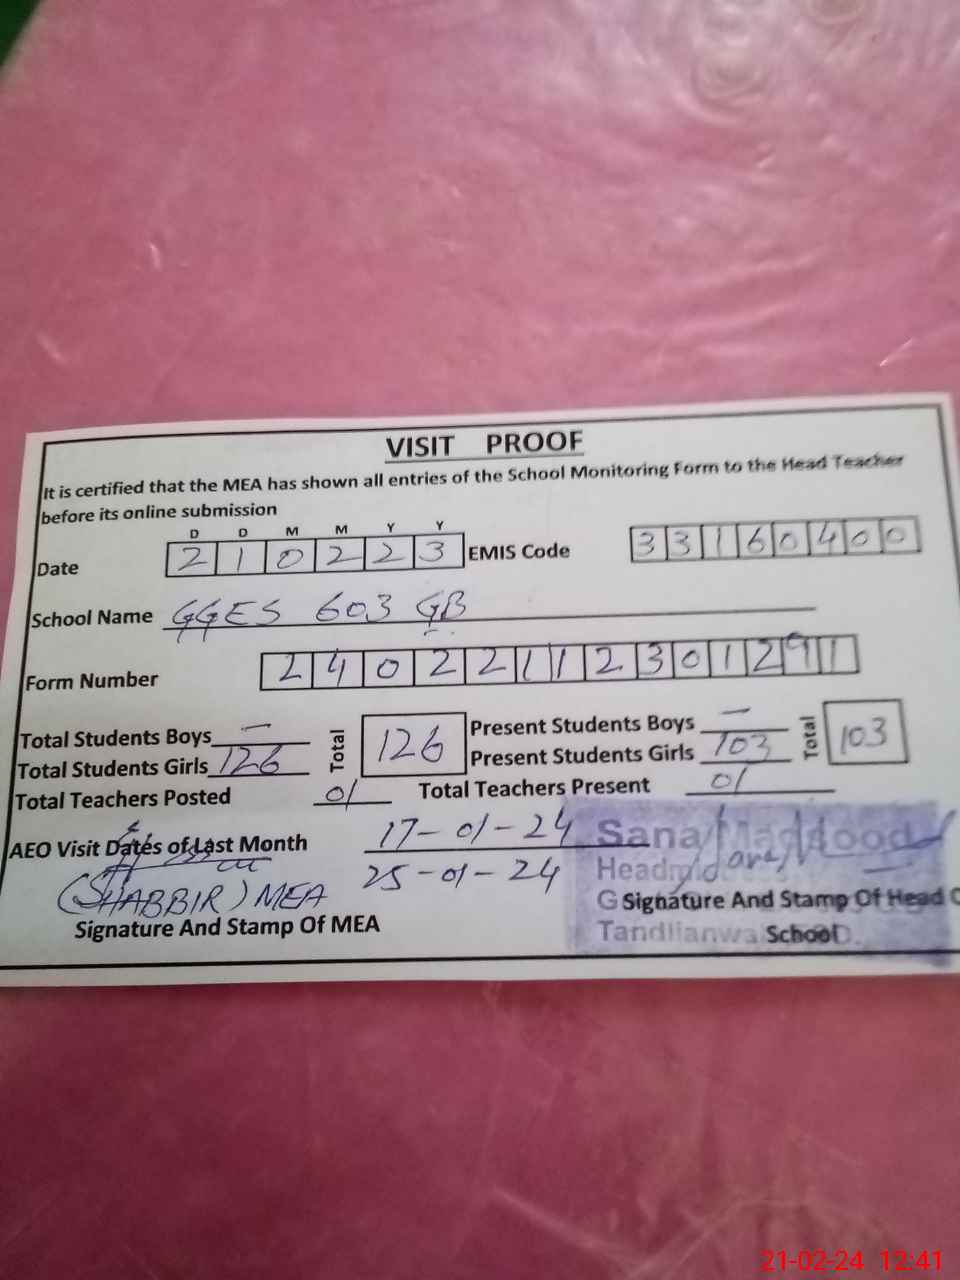 VISIT PROOF
It is certified that the MEA has shown all entries of the School Monitoring Form to the Head Teacher
before its online submission
D D M M Y Y
Date 2 1 0 2 2 3 EMIS Code 3 3 1 6 0 4 0 0
School Name GGES 603 GB
Form Number 2 4 0 2 2 1 1 2 3 0 1 2 9 1
Total Students Boys — Total 126 Present Students Boys — Total 103
Total Students Girls 126 Present Students Girls 103
Total Teachers Posted 01 Total Teachers Present 01
AEO Visit Dates of Last Month 17-01-24 Sana
25-01-24 Head
(SHABBIR) MEA
Signature And Stamp Of MEA G Signature And Stamp Of Head O
Tandlianwa School
21-02-24 12:41